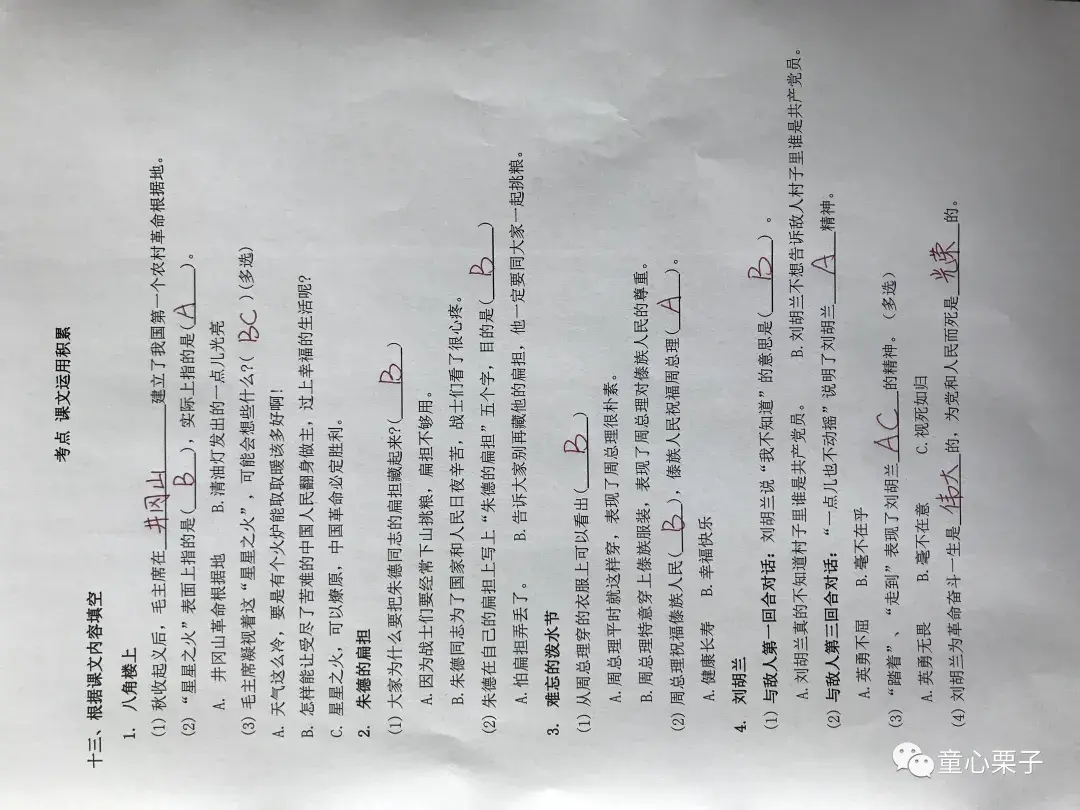 考点 课文运用积累
十三、根据课文内容填空
1. 八角楼上
(1) 秋收起义后，毛主席在 井冈山 建立了我国第一个农村革命根据地。
(2) “星星之火”表面上指的是( B )，实际上指的是( A )。
A. 井冈山革命根据地 B.清油灯发出的一点儿光亮
(3) 毛主席凝视着这“星星之火”，可能会想些什么?( BC )(多选)
A. 天气这么冷，要是有个火炉能取取暖该多好啊！
B. 怎样能让受尽了苦难的中国人民翻身做主，过上幸福的生活呢?
C. 星星之火，可以燎原，中国革命必定胜利。
2. 朱德的扁担
(1) 大家为什么要把朱德同志的扁担藏起来?( B )
A. 因为战士们要经常下山挑粮，扁担不够用。
B. 朱德同志为了国家和人民日夜辛苦，战士们看了很心疼。
(2) 朱德在自己的扁担上写上“朱德的扁担”五个字，目的是( B )
A. 怕扁担弄丢了。 B. 告诉大家别再藏他的扁担，他一定要同大家一起挑粮。
3. 难忘的泼水节
(1) 从周总理穿的衣服上可以看出( B )
A. 周总理平时就这样穿，表现了周总理很朴素。
B. 周总理特意穿上傣族服装，表现了周总理对傣族人民的尊重。
(2) 周总理祝福傣族人民( B )，傣族人民祝福周总理( A )。
A. 健康长寿 B. 幸福快乐
4. 刘胡兰
(1) 与敌人第一回合对话：刘胡兰说“我不知道”的意思是( B )。
A. 刘胡兰真的不知道村子里谁是共产党员。 B. 刘胡兰不想告诉敌人村子里谁是共产党员。
(2) 与敌人第三回合对话：“一点儿也不动摇”说明了刘胡兰 A 精神。
A. 英勇不屈 B. 毫不在乎
(3) “踏着”、“走到”表现了刘胡兰 AC 的精神。（多选）
A. 英勇无畏 B. 毫不在意 C. 视死如归
(4) 刘胡兰为革命奋斗一生是 伟大 的，为党和人民而死是 光荣 的。
童心栗子